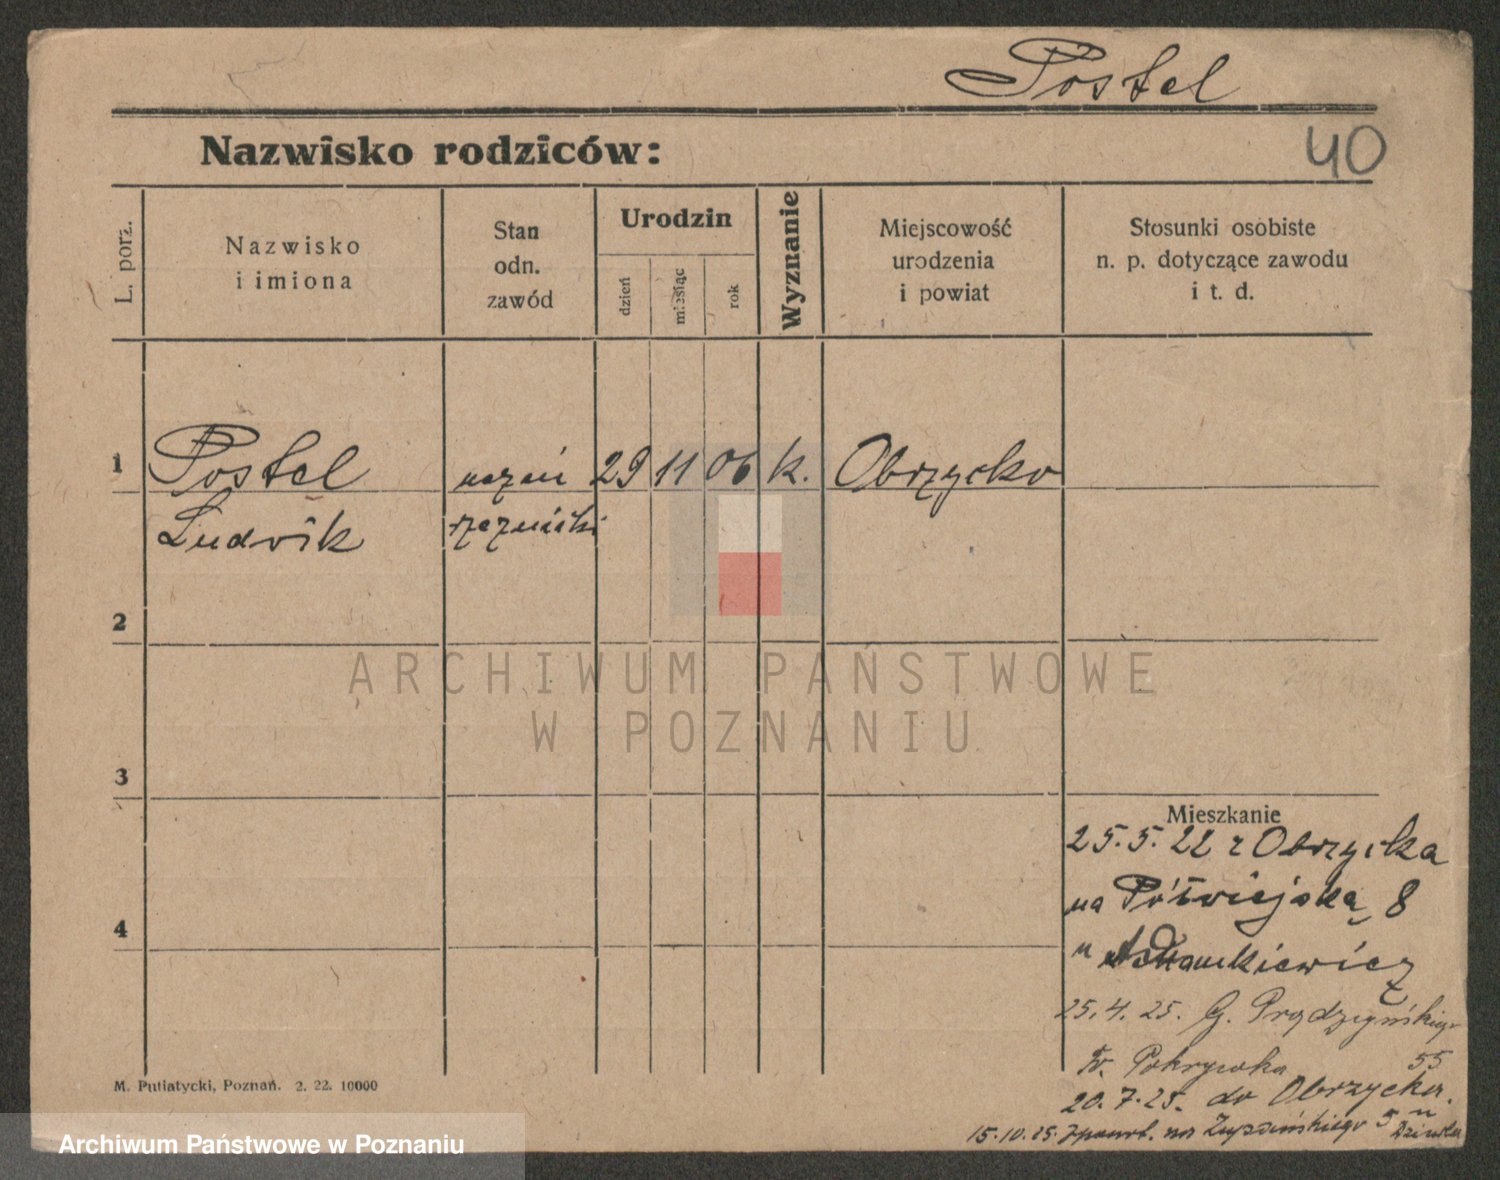 Postel
40
Nazwisko rodziców:
L. porz.
Nazwisko
i imiona
Stan
odn.
zawód
Urodzin
dzień
miesiąc
rok
Wyznanie
Miejscowość
urodzenia
i powiat
Stosunki osobiste
n. p. dotyczące zawodu
i t. d.
1
Postel
uczeń
29
11
06
k.
Obrzycko
Ludwik
rzeźnicki
2
ARCHIWUM PAŃSTWOWE
W POZNANIU
3
Mieszkanie
25.5.22 z Obrzycka
na Półwiejską 8
4
u
25.4.25. G. Prądzyńskiego
Fr. Pokrywka 55
20.7.25. do Obrzycka.
15.10.25 na 5 u
M. Putiatycki, Poznań. 2. 22. 10000
Archiwum Państwowe w Poznaniu